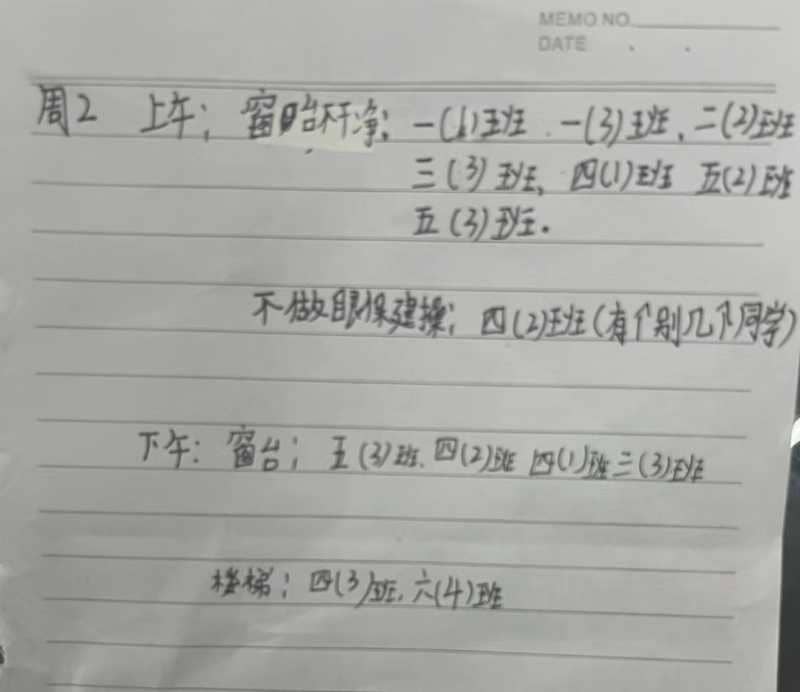 MEMO NO.
DATE . .
周2 上午; 窗台不干净; 一(1)班. 一(3)班、二(2)班
三(3)班、四(1)班 五(2)班
五(3)班.
不做眼保健操; 四(2)班(有个别几个同学)
下午: 窗台; 五(3)班、四(2)班 四(1)班 三(3)班
楼梯; 四(3)班、六(4)班